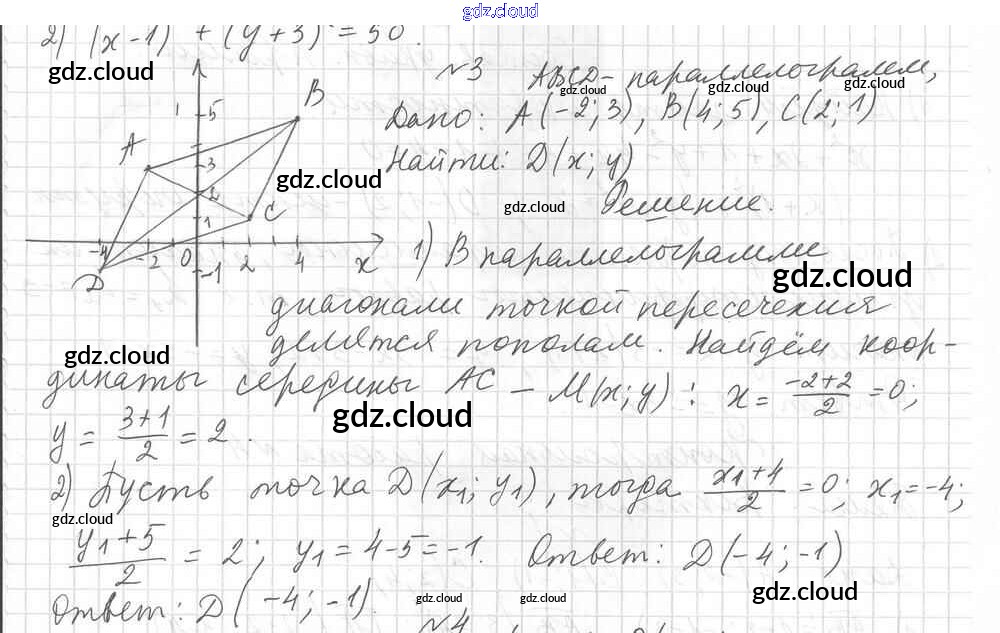 gdz.cloud
2) (x-1) + (y+3) = 50.
gdz.cloud
№3 ABCD - параллелограмм,
gdz.cloud gdz.cloud gdz.cloud
Дано: A(-2; 3), B(4; 5), C(2; 1)
Найти: D(x; y)
gdz.cloud
gdz.cloud
Решение.
A B C D
1 5 3 2 1 -4 -2 0 2 4 x -1
1) В параллелограмме
gdz.cloud
диагонали точкой пересечения
делятся пополам. Найдём коор-
gdz.cloud
динаты середины AC - M(x; y): x = (-2+2)/2 = 0;
gdz.cloud
y = (3+1)/2 = 2.
2) Пусть точка D(x₁; y₁), тогда (x₁+4)/2 = 0; x₁ = -4;
gdz.cloud
(y₁+5)/2 = 2; y₁ = 4-5 = -1. Ответ: D(-4; -1)
Ответ: D(-4; -1).
gdz.cloud gdz.cloud gdz.cloud
№4